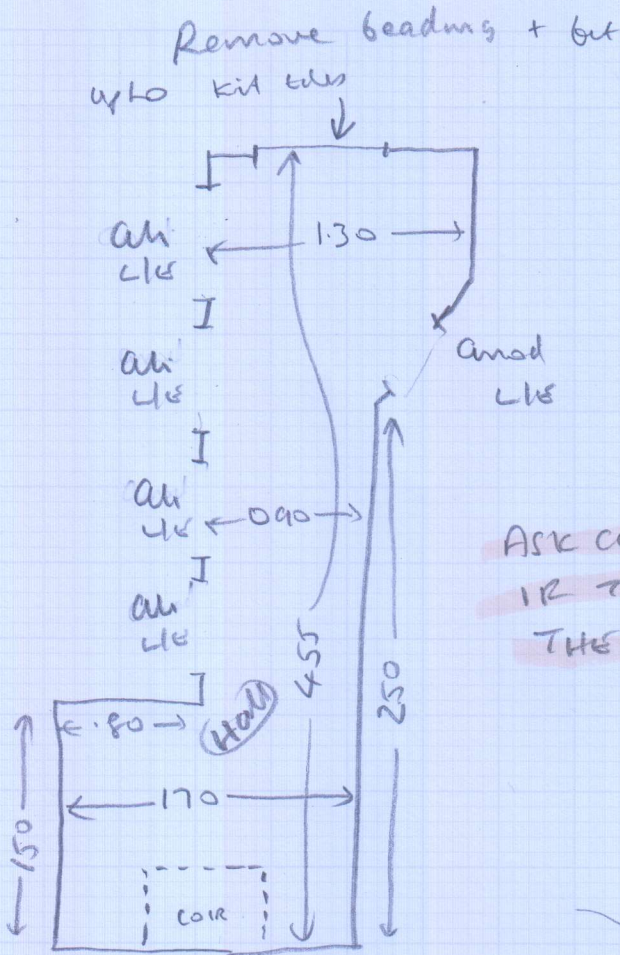 Remove beading + fit
up to kit tiles
ali
L/E
1.30
ali
L/E
anod
L/E
ali
L/E
090
ASK C
IR T
THE
ali
L/E
455
250
.80
Hall
170
150
COIR